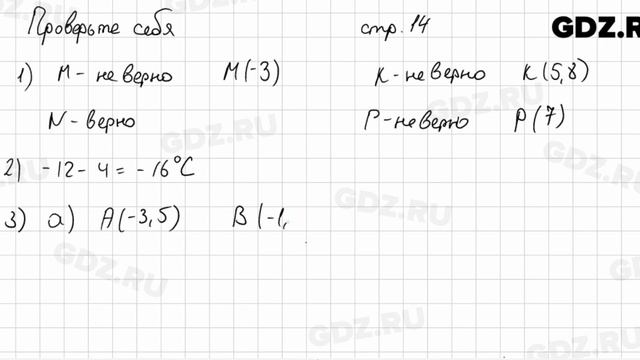 Проверьте себя стр. 14
1) M - не верно M(-3) K - не верно K(5,8)
N - верно P - не верно P(7)
2) -12 - 4 = -16°C
3) a) A(-3,5) B(-1,
GDZ.RU
GDZ.RU
GDZ.RU
GDZ.RU
GDZ.RU
GDZ.RU